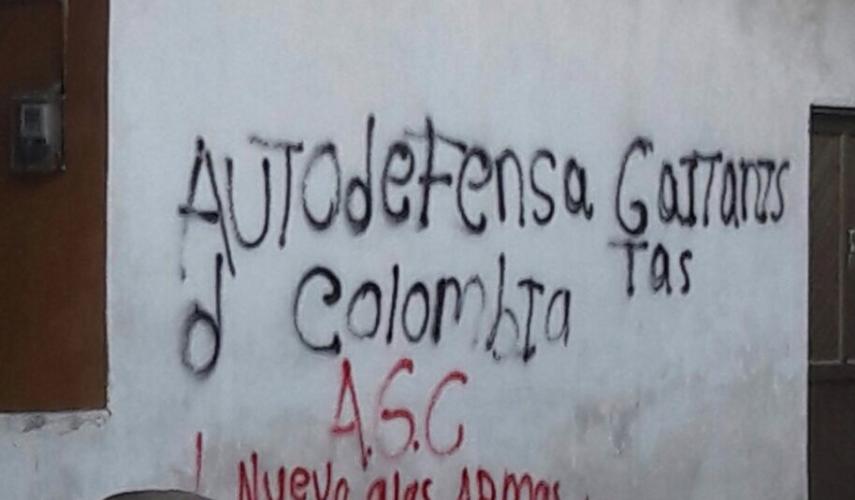 AUTOdeFensa GaITanIs
Tas
d ColombIa
A.G.C
Nuevo alas ARmas